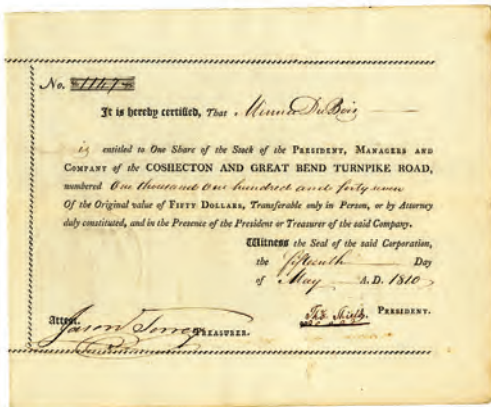 No. 1147
It is hereby certified, That Minner Du Bois
is entitled to One Share of the Stock of the PRESIDENT, MANAGERS AND
COMPANY of the COSHECTON AND GREAT BEND TURNPIKE ROAD,
numbered One thousand One hundred and forty seven
Of the Original value of FIFTY DOLLARS, Transferable only in Person, or by Attorney
duly constituted, and in the Presence of the President or Treasurer of the said Company.
Witness the Seal of the said Corporation,
the fifteenth Day
of May A. D. 1810
Tho. Shields PRESIDENT.
Attest.
Jason Torrey TREASURER.